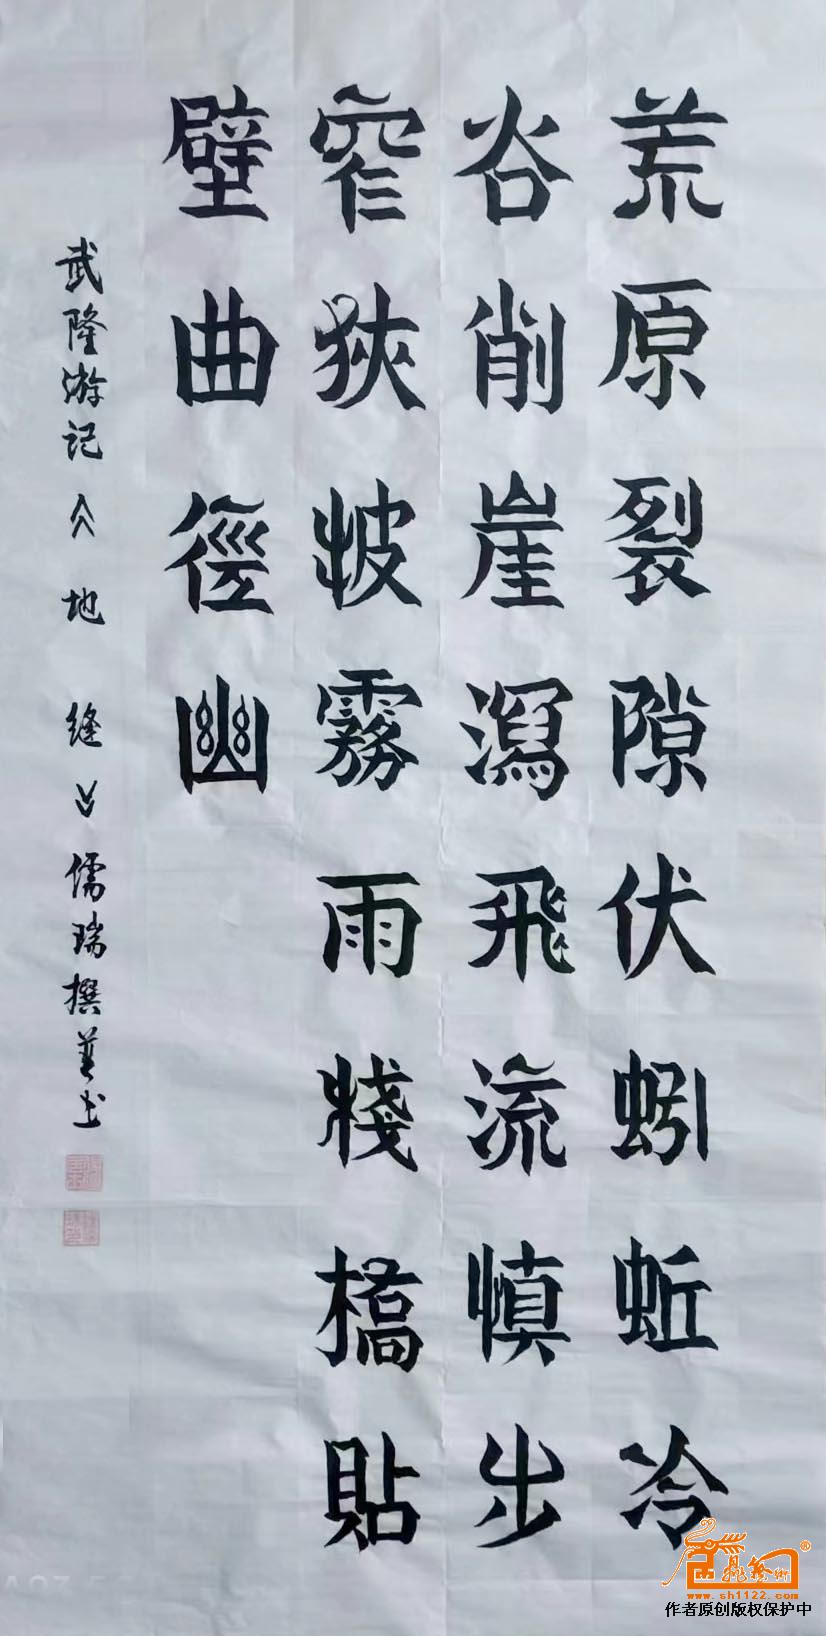 荒原裂隙伏蚓蚯冷
谷削崖瀉飛流慎步
窄狹披霧雨棧橋貼
壁曲徑幽
武隆游记《地缝》儒瑞撰并书
www.sh1122.com
作者原创版权保护中